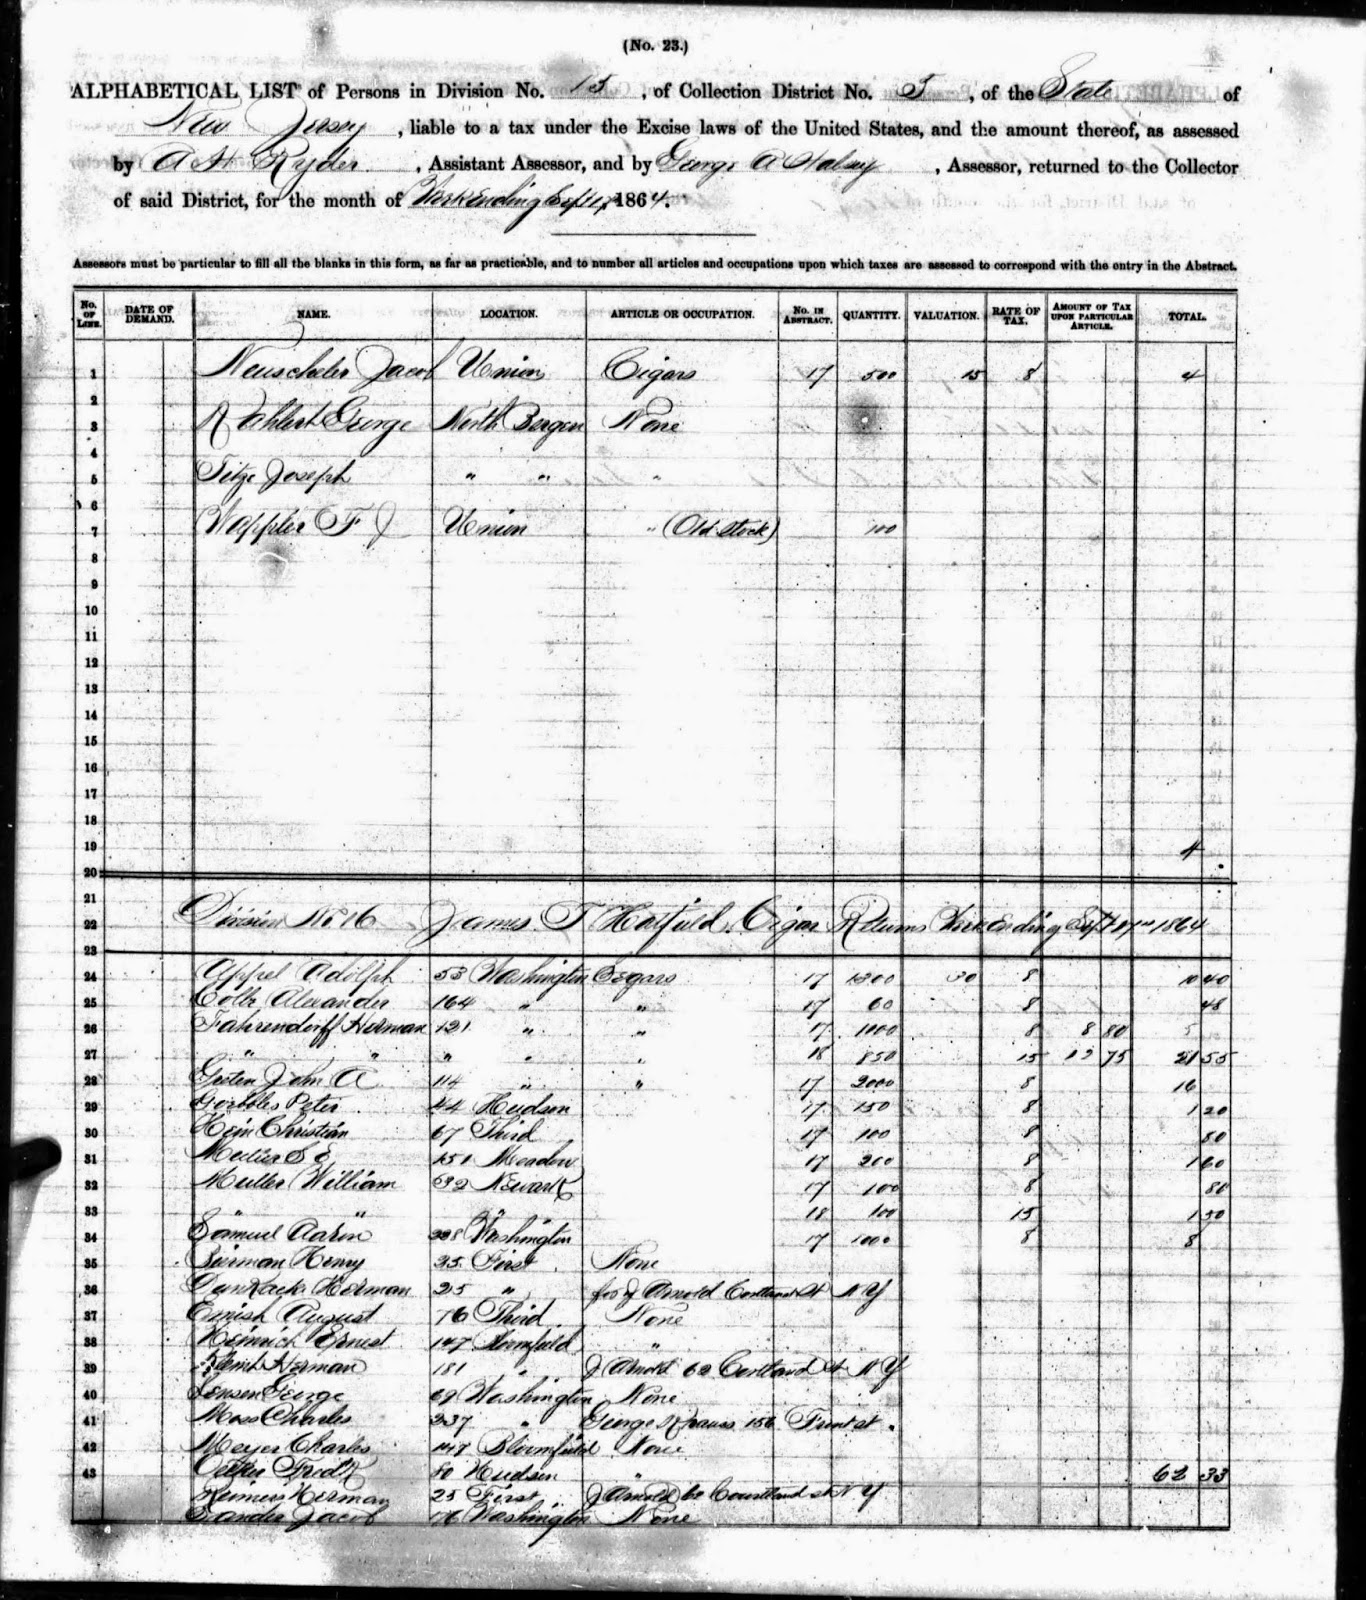 (No. 23.)
ALPHABETICAL LIST of Persons in Division No. 15, of Collection District No. 5, of the State of
New Jersey, liable to a tax under the Excise laws of the United States, and the amount thereof, as assessed
by A H Ryder, Assistant Assessor, and by George A Halsey, Assessor, returned to the Collector
of said District, for the month of Week Ending Sept 17 1864.
Assessors must be particular to fill all the blanks in this form, as far as practicable, and to number all articles and occupations upon which taxes are assessed to correspond with the entry in the Abstract.
No. OF LINE. DATE OF DEMAND. NAME. LOCATION. ARTICLE OR OCCUPATION. No. IN ABSTRACT. QUANTITY. VALUATION. RATE OF TAX. AMOUNT OF TAX UPON PARTICULAR ARTICLE. TOTAL.
1 Jacob Union Cigars 17 500 15 8 4
2
3 George North Bergen None
4
5 Titze Joseph " " "
6
7 Wappler F J Union " (Old Stock) 100
8
9
10
11
12
13
14
15
16
17
18
19 4
20
21
22 Division No 16 James T Hatfield Cigar Returns Week Ending Sept 17th 1864
23
24 Appel Adolph 53 Washington Segars 17 1300 30 8 10 40
25 Colb Alexander 164 " " 17 60 8 48
26 Fahrendorff Herman 121 " " 17 8 8 80
27 " " " " " 18 850 15 12 75 21 55
28 John A 114 " " 17 2000 8 16
29 Peter 44 Hudson 17 150 8 1 20
30 Hein Christian 67 Third 17 100 8 80
31 151 Meadow 17 200 8 1 60
32 Muller William 592 Newark 17 100 8 80
33 " " " 18 100 15 1 50
34 Samuel Aaron 228 Washington 17 1000 8 8
35 Bierman Henry 25 First None
36 Herman 25 " for J Arnold Cortland St N Y
37 August 76 Third None
38 Heinrich Ernest 147 Bloomfield "
39 Herman 181 " J Arnold 62 Cortland St N Y
40 Jensen George 69 Washington None
41 Moss Charles 237 " George Krauss 156 Front st.
42 Meyer Charles 147 Bloomfield None
43 Fredk 80 Hudson " 62 33
Herman 25 First J Arnold 62 Courtland st N Y
Sander Jacob 176 Washington None